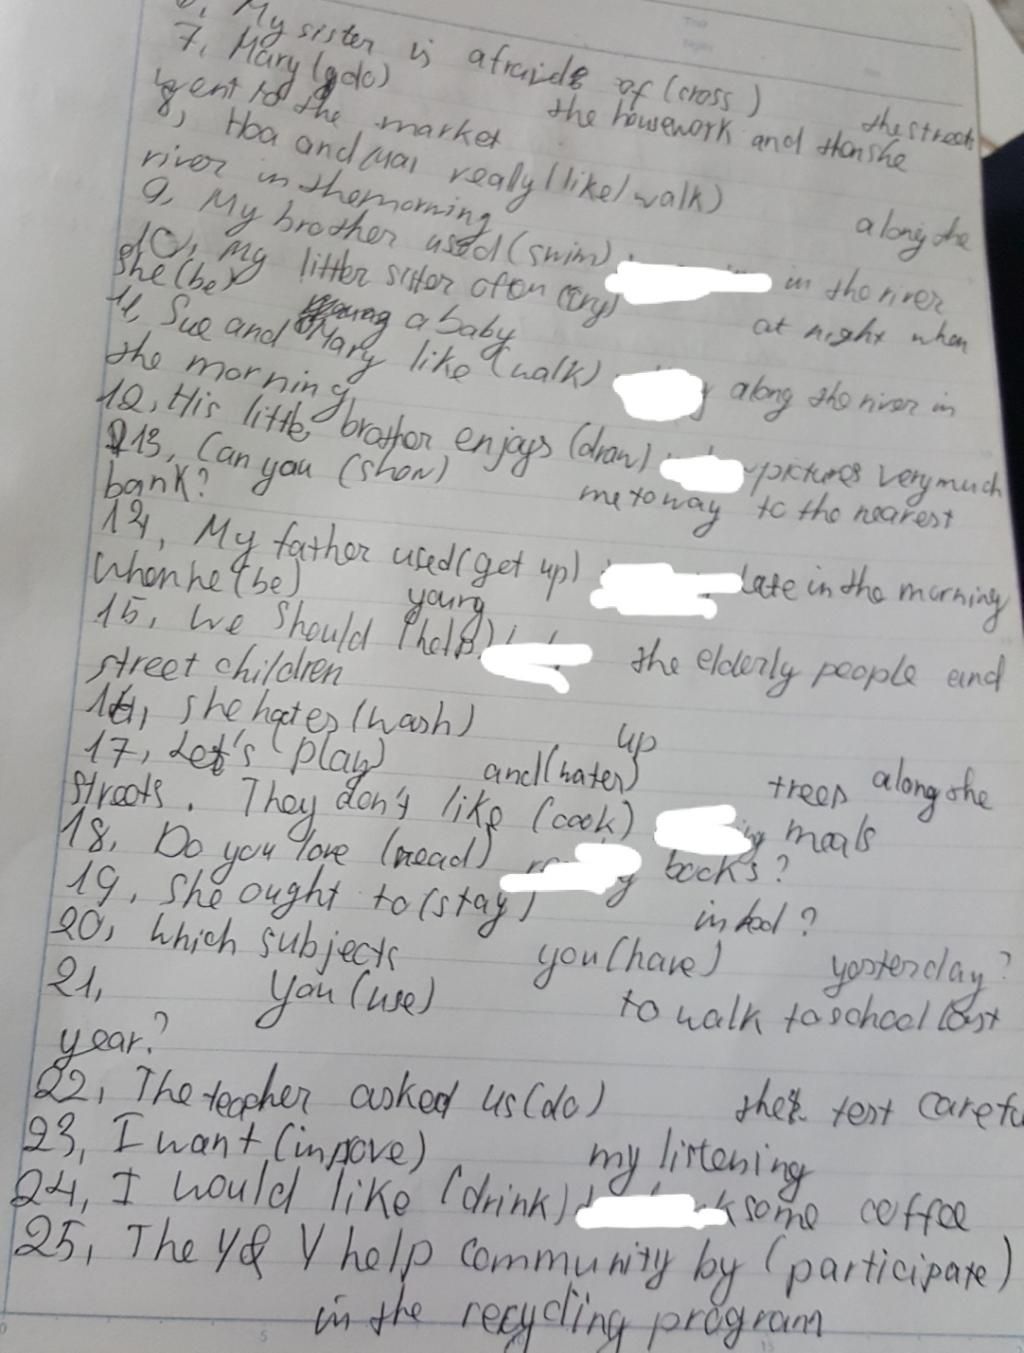 6, My sister is afraid of (cross) the street
7, Mary (do) the housework and then she
went to the market
8, Hoa and Mai really (like/walk) along the
river in the morning
9, My brother used (swim) in the river
10, My litter sister often (cry) at night when
she (be) a baby
11, Sue and Mary like (walk) along the river in
the morning
12, His little brother enjoys (draw) pictures very much
13, Can you (show) me to way to the nearest
bank?
14, My father used (get up) late in the morning
when he (be) young
15, We should (help) the elderly people and
street children
16, She hates (wash) up
17, Let's (play) and (water) trees along the
streets. They don't like (cook) meals
18, Do you love (read) books?
19, She ought to (stay) in bed?
20, Which subjects you (have) yesterday?
21, you (use) to walk to school last
year?
22, The teacher asked us (do) the test
23, I want (impove) my listening
24, I would like (drink) some coffee
25, The Y & Y help community by (participate)
in the recycling program